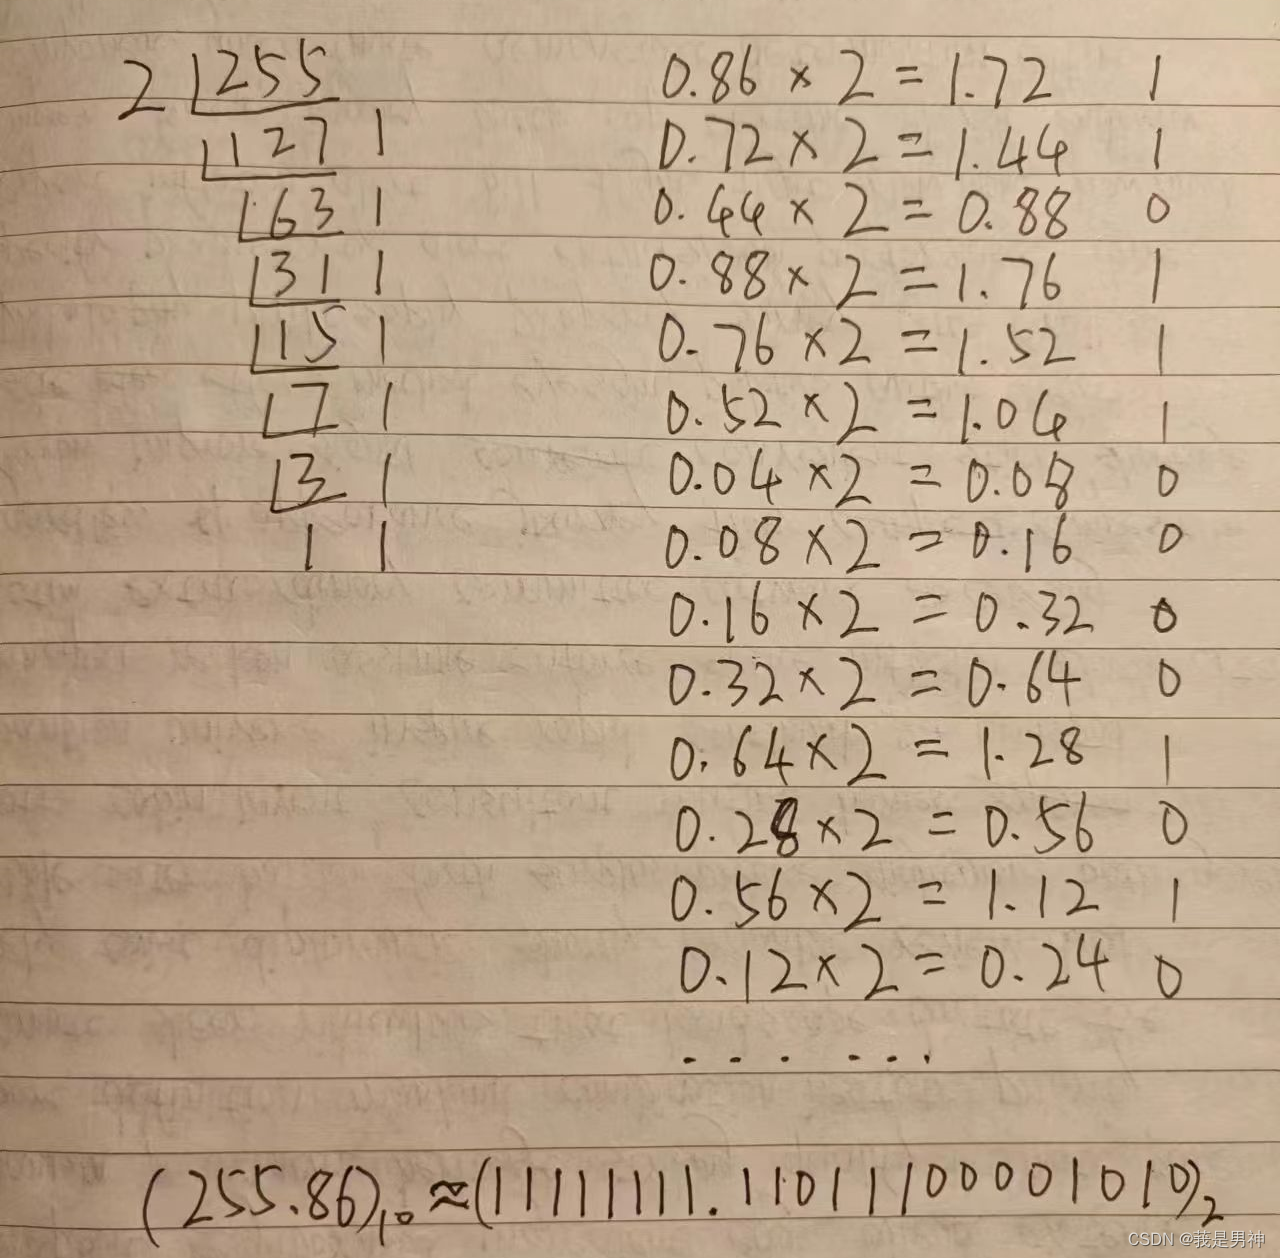 2 255
127 1
63 1
31 1
15 1
7 1
3 1
1 1
0.86 × 2 = 1.72 1
0.72 × 2 = 1.44 1
0.44 × 2 = 0.88 0
0.88 × 2 = 1.76 1
0.76 × 2 = 1.52 1
0.52 × 2 = 1.04 1
0.04 × 2 = 0.08 0
0.08 × 2 = 0.16 0
0.16 × 2 = 0.32 0
0.32 × 2 = 0.64 0
0.64 × 2 = 1.28 1
0.28 × 2 = 0.56 0
0.56 × 2 = 1.12 1
0.12 × 2 = 0.24 0
... ...
(255.86)₁₀ ≈ (11111111.11011100001010)₂
CSDN @我是男神